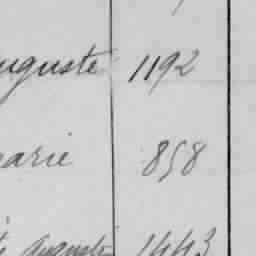 uguste 1192
arie 858
Auguste 1443